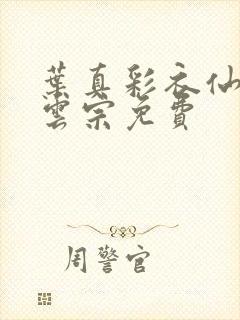 葉真彩衣仙
雲宗免費
周警官